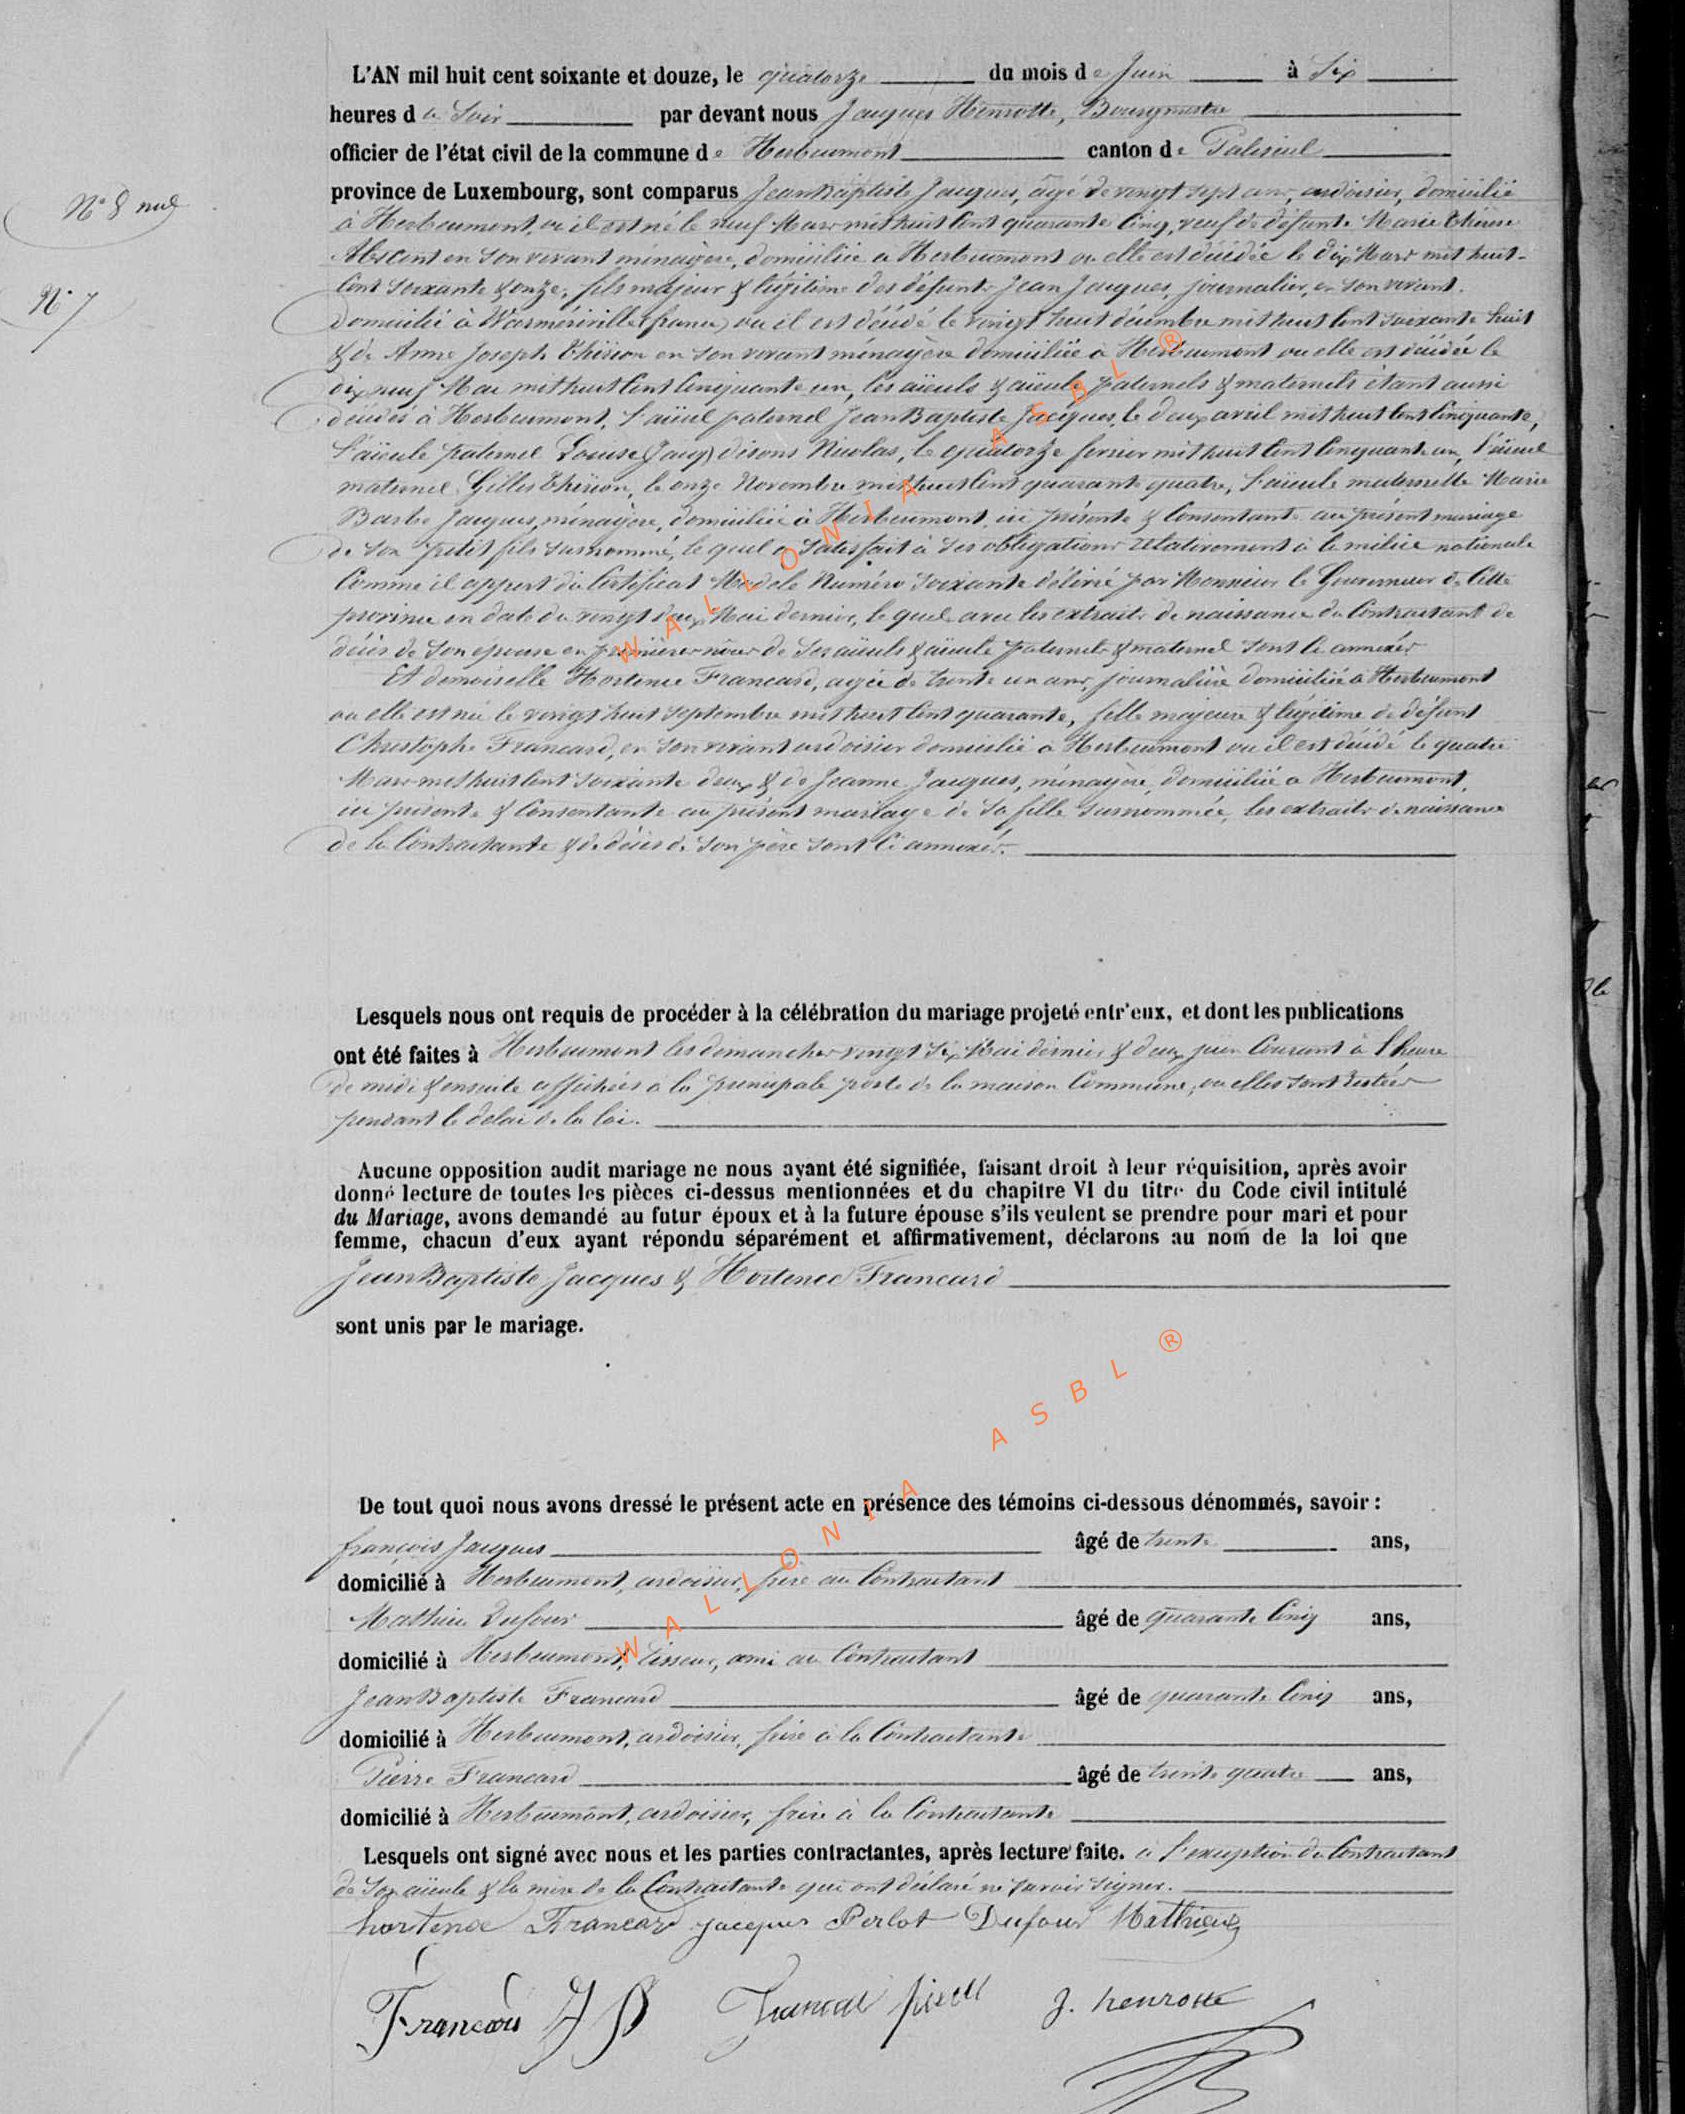 L'AN mil huit cent soixante et douze, le quatorze du mois de Juin à Six
heures du Soir par devant nous Jacques Henrotte, Bourgmestre
officier de l'état civil de la commune de Herbeumont canton de Paliseul
N° 8 nul
province de Luxembourg, sont comparus Jean Baptiste Jacques, âgé de vingt sept ans, ardoisier, domicilié
à Herbeumont, ou il est né le neuf Mars mil huit Cent quarante Cinq, veuf de défunte Marie Thérèse
en son vivant ménagère, domiciliée à Herbeumont ou elle est décédée le dix Mars mil huit-
N° 7
Cent soixante & onze, fils majeur & légitime des défunts Jean Jacques, journalier, en son vivant.
domicilié à Warmériville (france) ou il est décédé le vingt huit décembre mil huit Cent soixante huit
& de Anne Joseph Thirion en son vivant ménagère domiciliée à Herbeumont ou elle est décédée le
dix neuf Mai mil huit Cent Cinquante un, les aïeuls & aïeule paternels & maternels étant aussi
décédés à Herbeumont, l'aïeul paternel Jean Baptiste Jacques, le deux avril mil huit Cent Cinquante,
l'aïeule paternel Louise (Jacq) disons Nicolas, le quatorze fevrier mil huit Cent Cinquante un, l'aïeul
maternel Gilles Thirion, le onze Novembre mil huit Cent quarante quatre, l'aïeule maternelle Marie
Barbe Jacques, ménagère, domiciliée à Herbeumont, ici présente & Consentante au présent mariage
de son petit fils susnommé, le quel a satisfait à ses obligations relativement à la milice nationale
Comme il appert du Certificat Modele Numéro soixante délivré par Monsieur le Gouverneur de Cette
province en date du vingt deux Mai dernier, le quel avec les extraits de naissance du Contractant de
décès de son épouse en première noces de ses aïeuls & aïeule paternels & maternel sont Ci annexés
Et demoiselle Hortence Francard, agée de trente un ans, journalière domiciliée à Herbeumont
ou elle est née le vingt huit septembre mil huit Cent quarante, fille majeure & légitime de défunt
Christophe Francard, en son vivant ardoisier domicilié à Herbeumont ou il est décédé le quatre
Mars mil huit Cent soixante deux & de Jeanne Jacques, ménagère, domiciliée à Herbeumont,
ici présente & Consentante au présent mariage de sa fille susnommée, les extraits de naissance
de la Contractante & de décès de son père sont Ci annexés.
Lesquels nous ont requis de procéder à la célébration du mariage projeté entr'eux, et dont les publications
ont été faites à Herbeumont les dimanches vingt six Mai dernier & deux juin Courant à l'heure
de midi & ensuite affichées à la principale porte de la maison Commune, ou elles sont restées
pendant le délai de la loi.
Aucune opposition audit mariage ne nous ayant été signifiée, faisant droit à leur réquisition, après avoir
donné lecture de toutes les pièces ci-dessus mentionnées et du chapitre VI du titre du Code civil intitulé
du Mariage, avons demandé au futur époux et à la future épouse s'ils veulent se prendre pour mari et pour
femme, chacun d'eux ayant répondu séparément et affirmativement, déclarons au nom de la loi que
Jean Baptiste Jacques & Hortence Francard
sont unis par le mariage.
De tout quoi nous avons dressé le présent acte en présence des témoins ci-dessous dénommés, savoir :
françois Jacques âgé de trente ans,
domicilié à Herbeumont, ardoisier, frère au Contractant
Mathieu Dufour âgé de quarante Cinq ans,
domicilié à Herbeumont, tisseur, ami au Contractant
Jean Baptiste Francard âgé de quarante Cinq ans,
domicilié à Herbeumont, ardoisier, frère à la Contractante
Pierre Francard âgé de trente quatre ans,
domicilié à Herbeumont, ardoisier, frère à la Contractante
Lesquels ont signé avec nous et les parties contractantes, après lecture faite. à l'exception du Contractant
de son aïeule & la mère de la Contractante qui ont déclaré ne savoir signer.
hortence Francard jacques Perlot Dufour Mathieu
J. henrotte
WALLONIA ASBL ®
WALLONIA ASBL ®